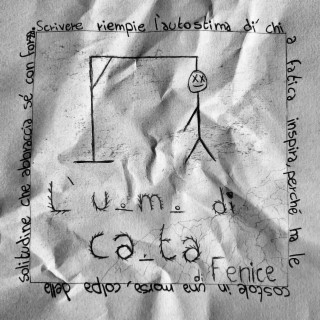 Scrivere riempie l'autostima di chi
a fatica inspira, perché ha le
costole in una morsa, colpa della
solitudine che abbraccia sé con forza.
L'u_m_ di
ca_ta
Fenice